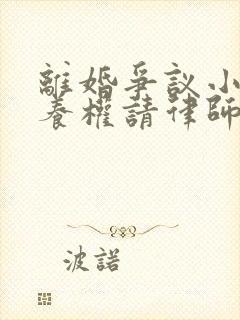 離婚爭議小
養權請律師
波諾